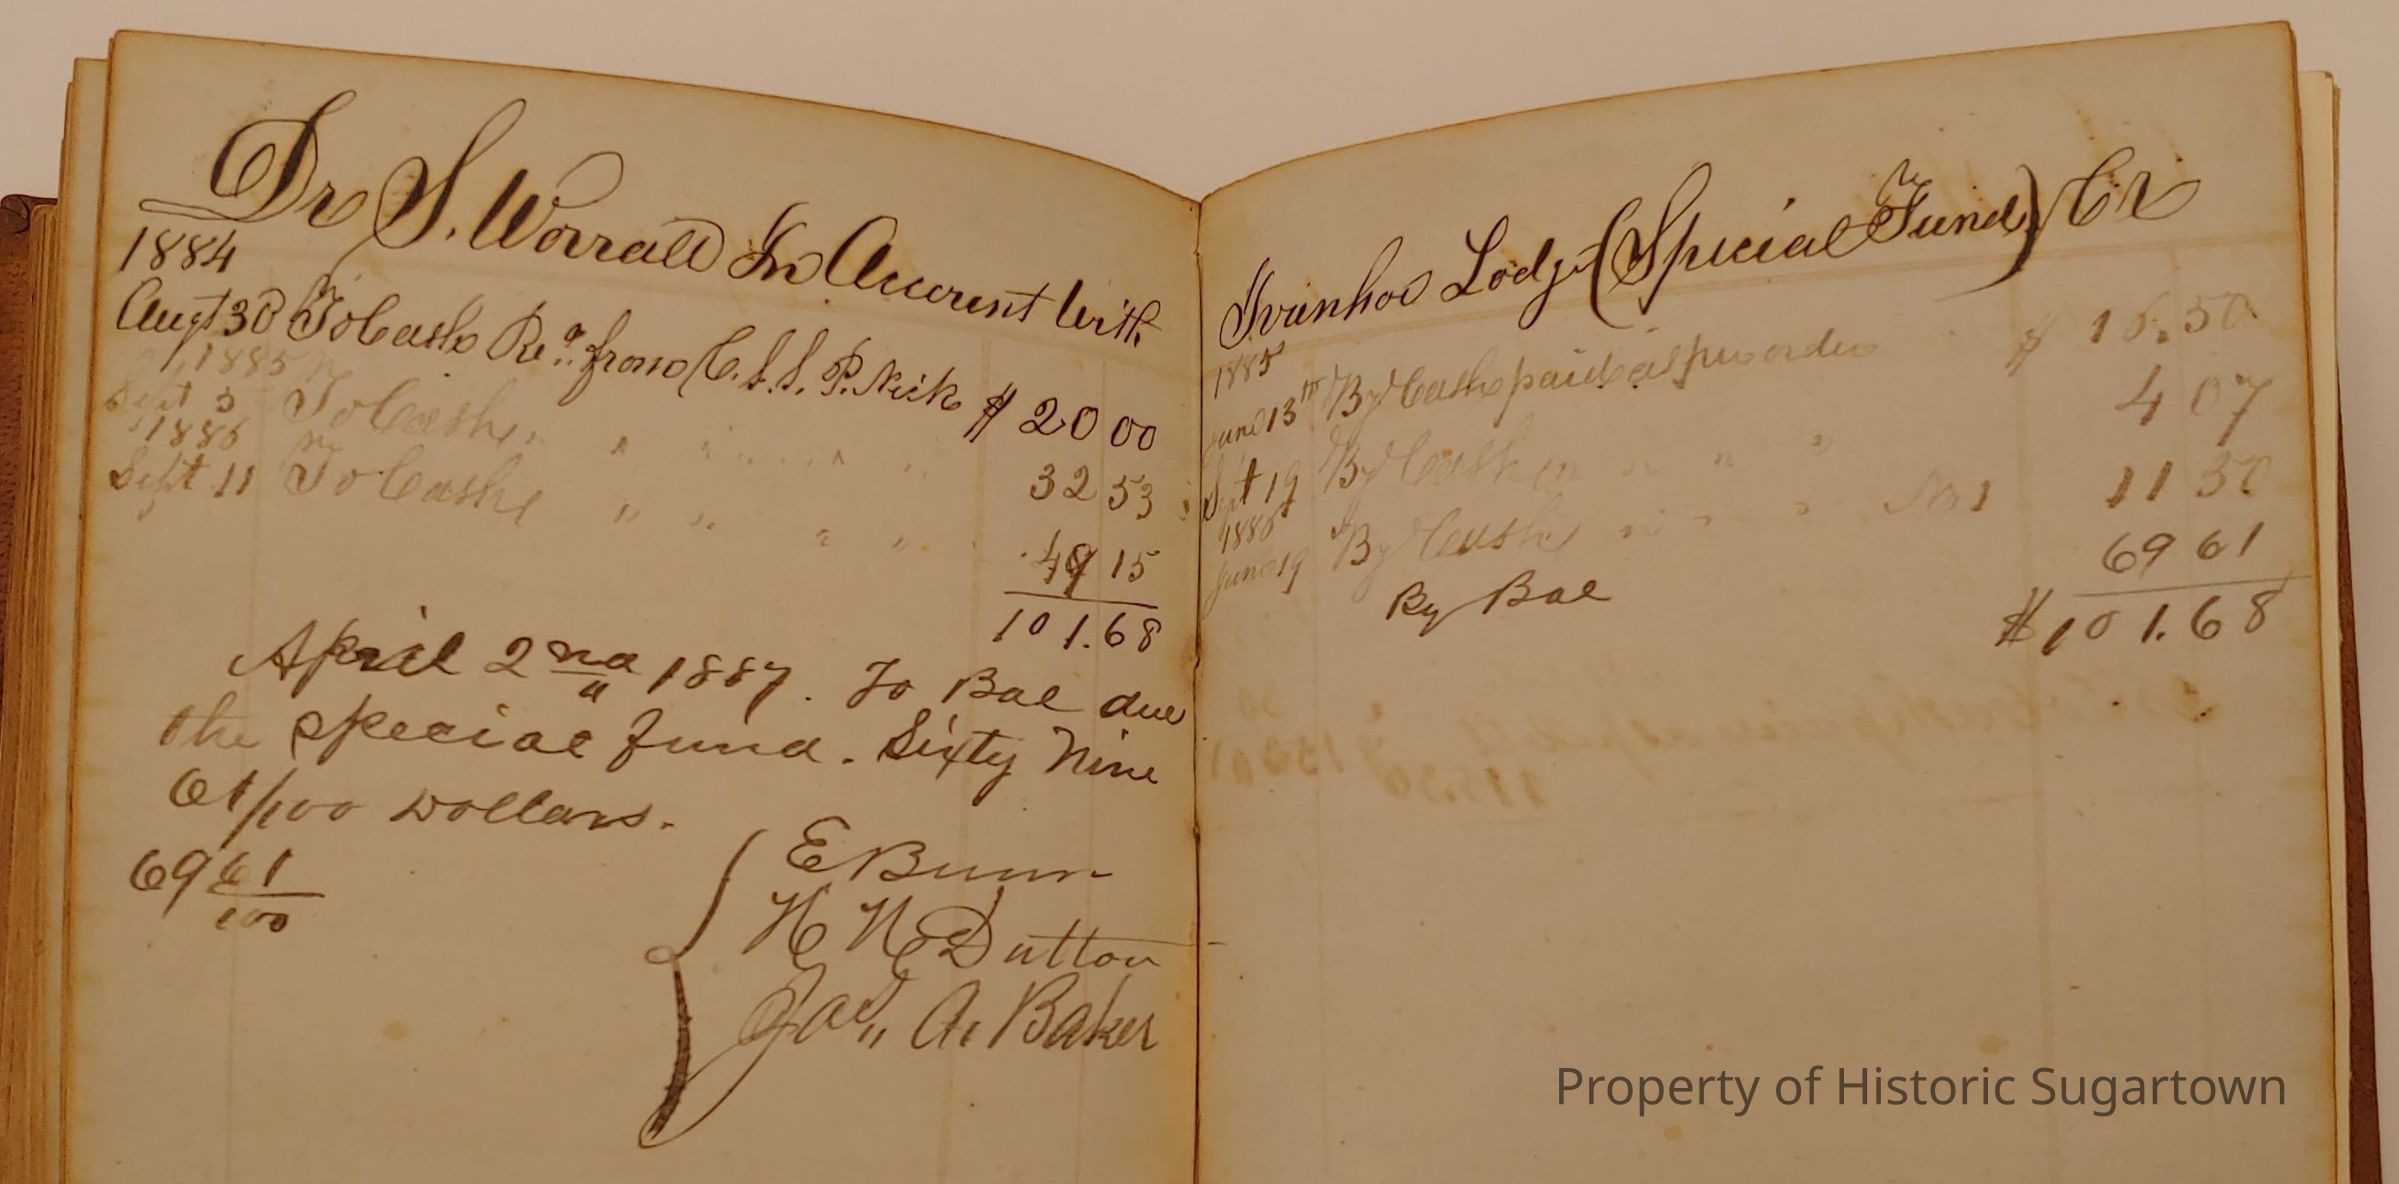 Dr S. Worrall In Account With
1884
Augt 30 To Cash Re.d from C. S. S. P. Nick $ 20 00
1885
Sept 5 To Cash " " " " 32 53
1886
Sept 11 To Cash " " " " 49 15
101.68
April 2nd 1887. To Bal due
the special fund. Sixty Nine
61/100 Dollars.
69 61/100
E Bunn
H N Dutton
Jas. A. Baker
Ivanhoe Lodge (Special Fund) Cr
1885
June 13th By Cash paid as per order $ 16.50
Sept 19 By Cash " " " " 4 07
1886
June 19 By Cash " " " No 1 11 50
By Bal 69 61
$ 101.68
Property of Historic Sugartown